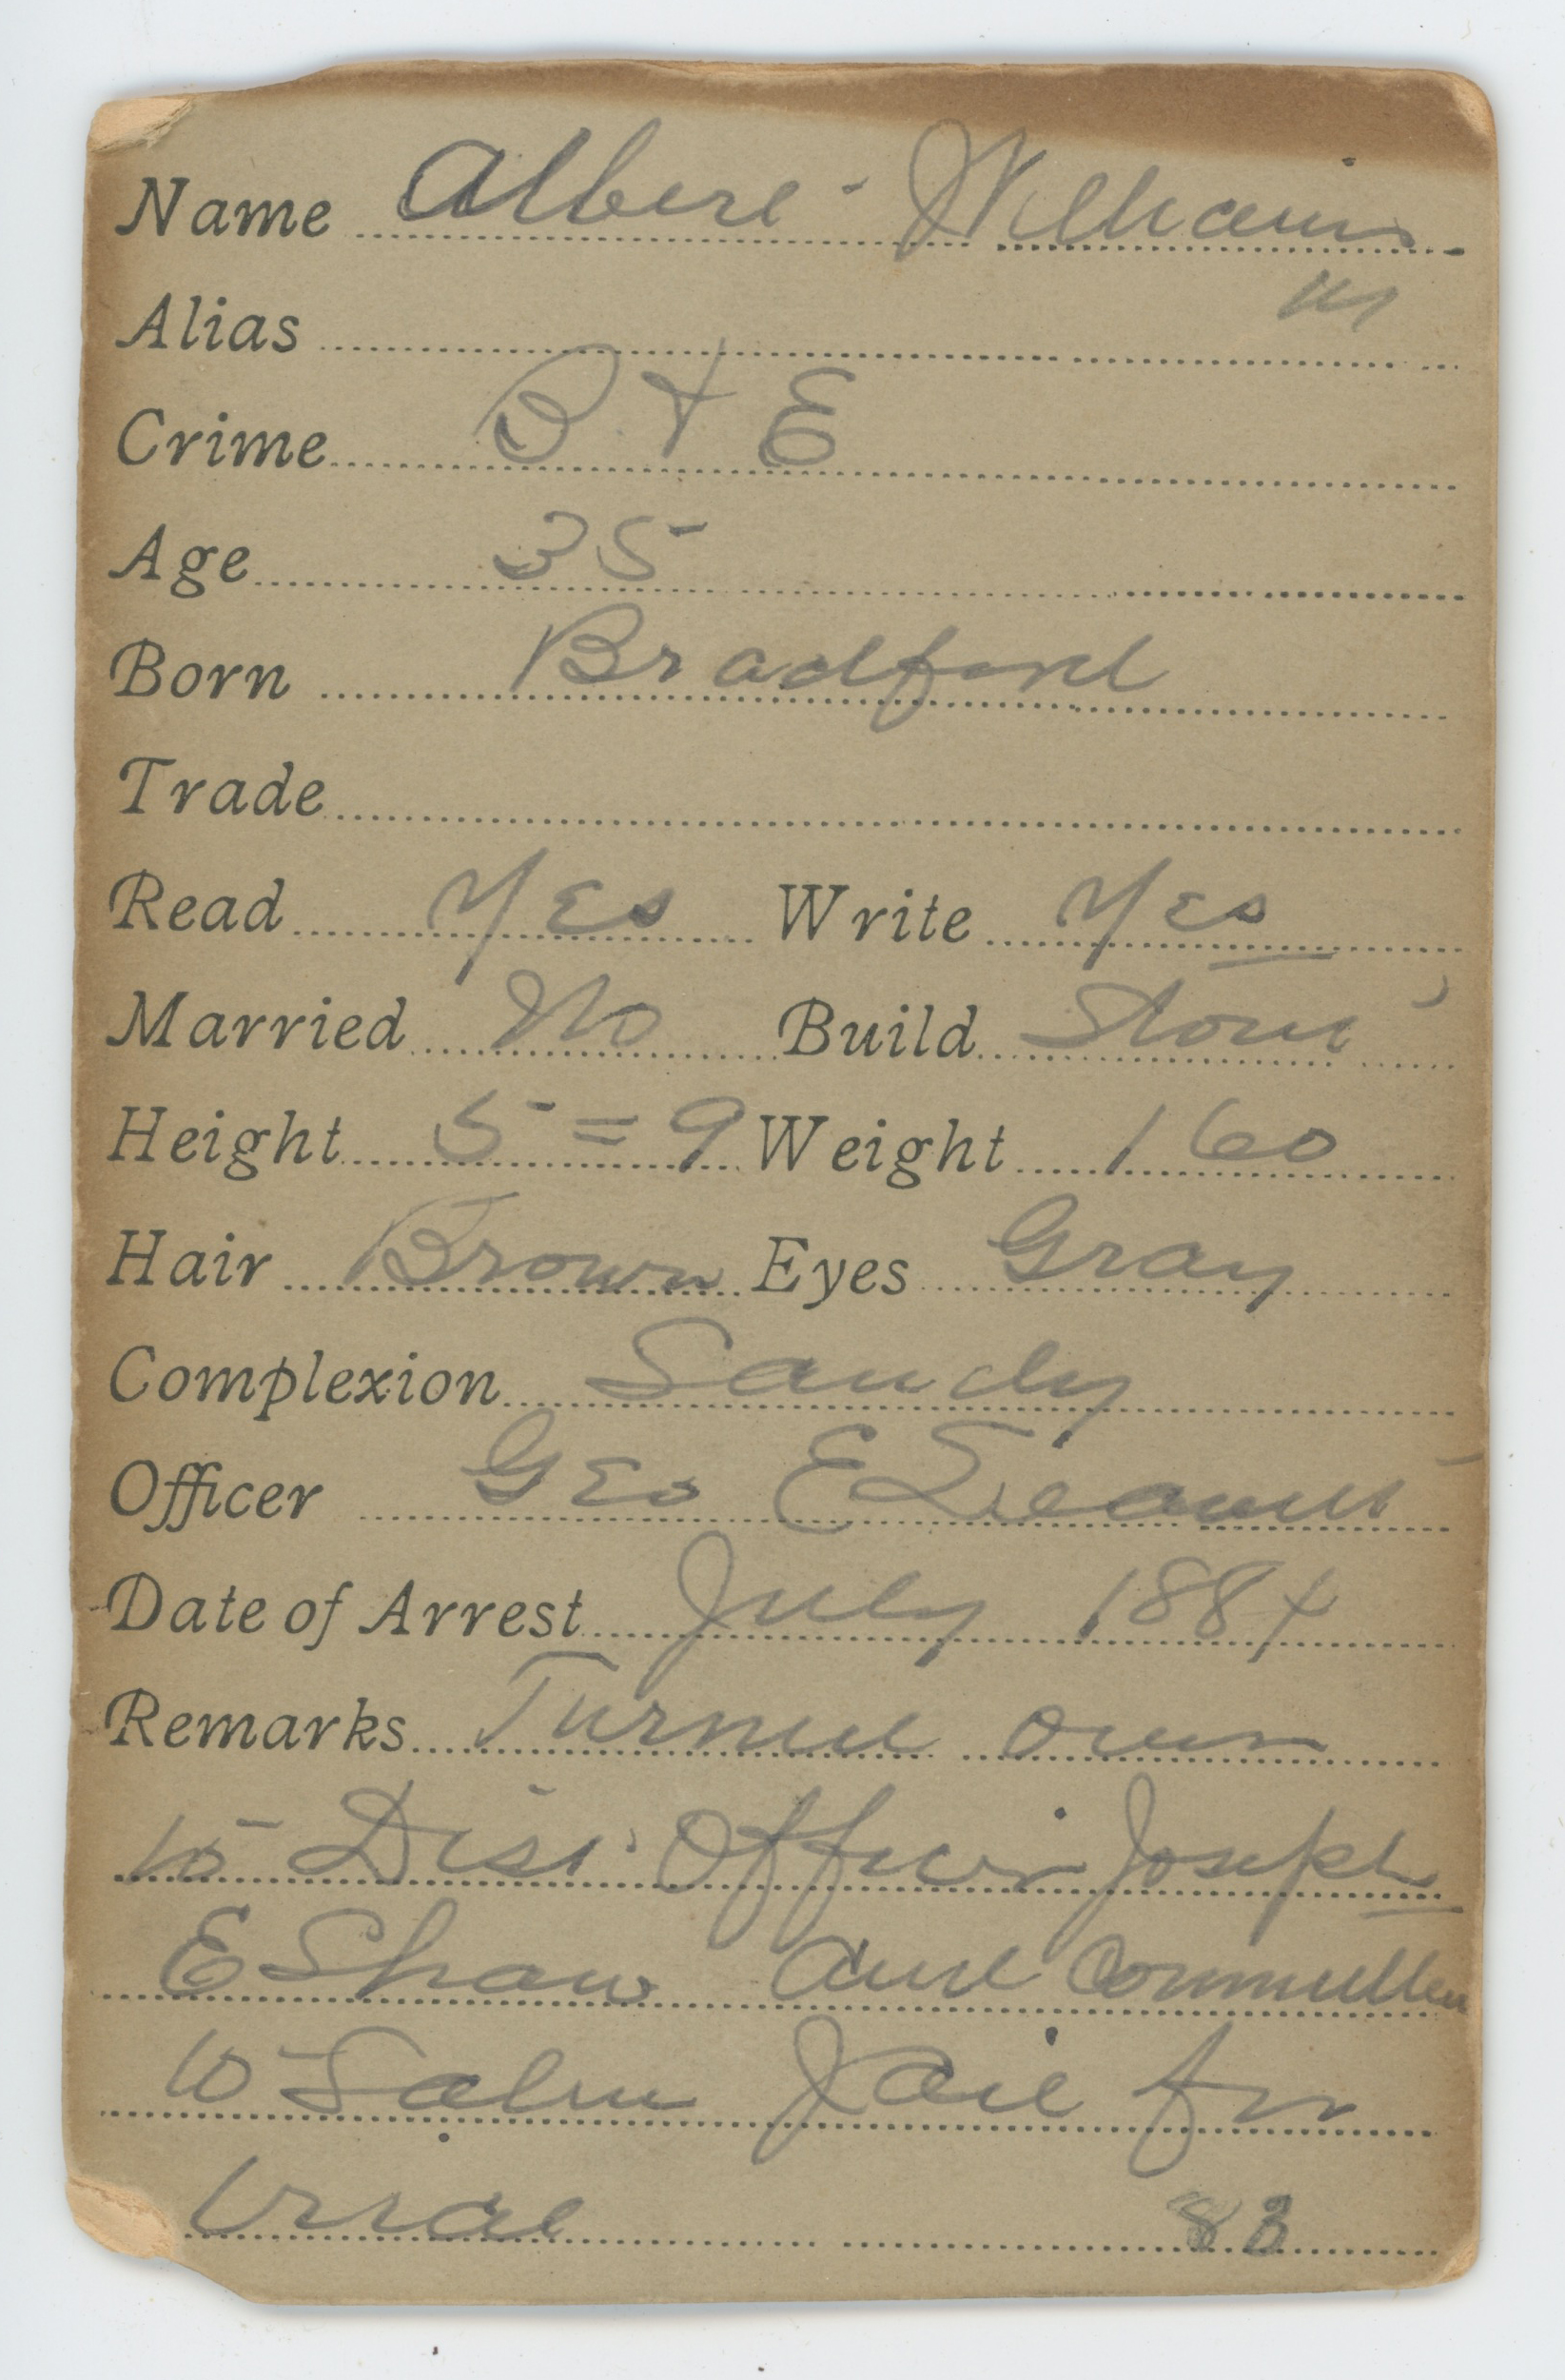 Name Albert Williams
Alias
Crime B + E
Age 35
Born Bradford
Trade
Read Yes Write Yes
Married No Build Stout
Height 5=9 Weight 160
Hair Brown Eyes Gray
Complexion Sandy
Officer Geo E
Date of Arrest July 1884
Remarks Turned over
to Dist. Officer Joseph
E Shaw and Committed
to Salem Jail for
trial 83